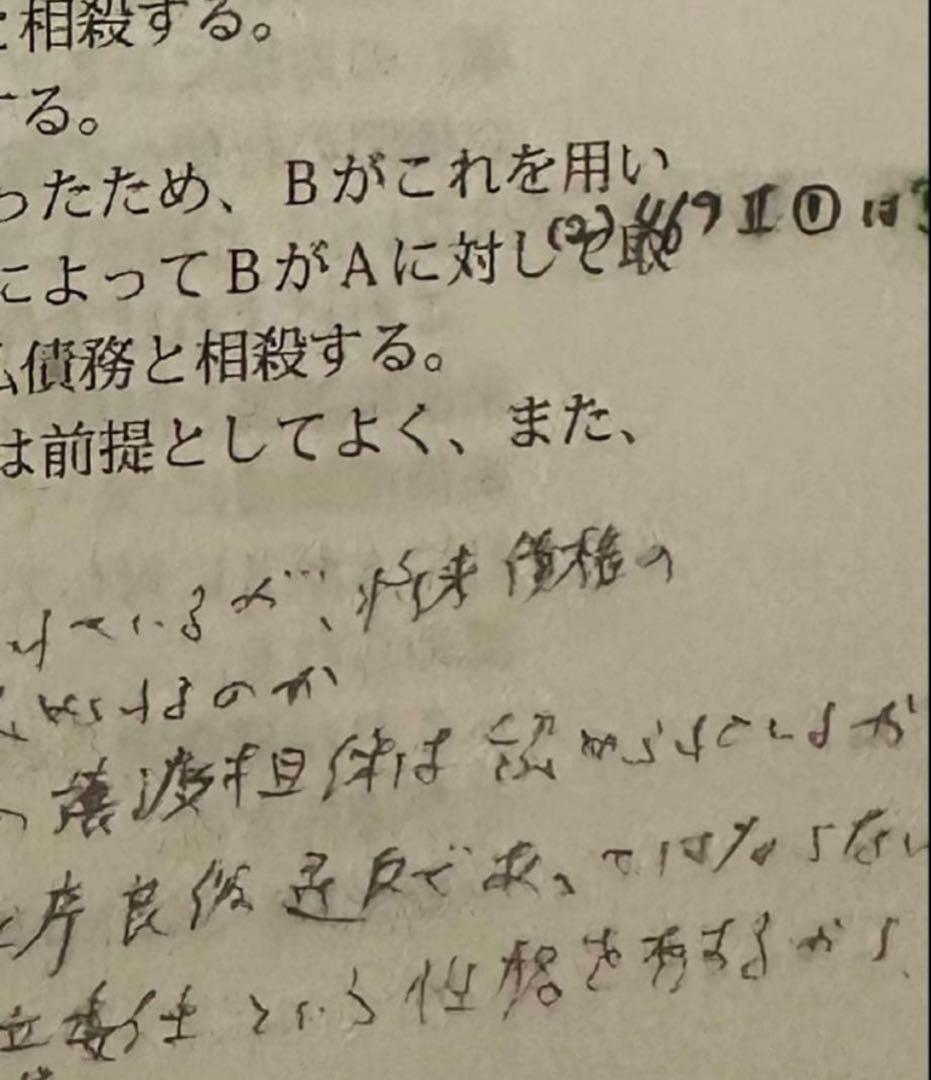 と相殺する。
する。
ったため、Bがこれを用い
(2) 469 Ⅱ ① は
によってBがAに対して取
債務と相殺する。
は前提としてよく、また、
けているが…、将来債権の
められるのか
譲渡担保は認められているが
序良俗違反であってはならない
立委任という性格を有するから、